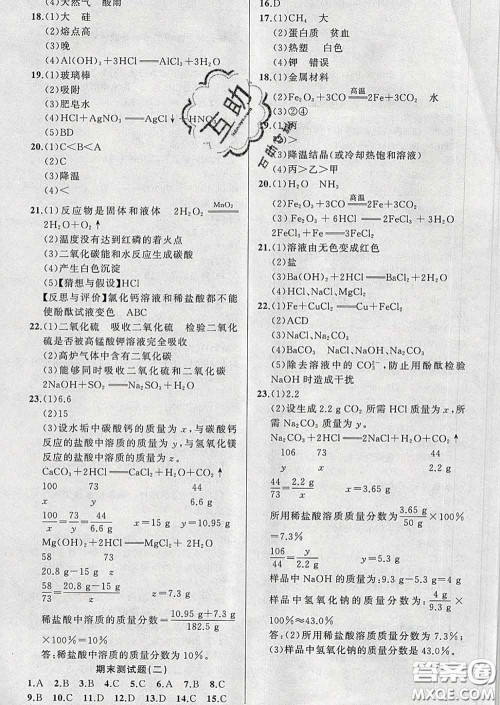 (1)天然气 酸雨
18.(1)大 硅
(2)熔点高
(3)晚
(4)Al₂O₃+6HCl══2AlCl₃+3H₂O
19.(1)玻璃棒
(2)吸附
(3)肥皂水
(4)HCl+AgNO₃══AgCl↓+HNO₃
(5)BD
20.(1)C<B<A
(2)
(3)降温
(4)<
21.(1)反应物是固体和液体 2H₂O₂ ══MnO₂
2H₂O+O₂↑
(2)温度没有达到红磷的着火点
(3)二氧化碳能和水反应生成碳酸
(4)产生白色沉淀
(5)【猜想与假设】HCl
【反思与评价】氯化钙溶液和稀盐酸都不能
使酚酞试液变色 ABC
22.(1)二氧化硫 吸收二氧化硫 检验二氧化
硫是否被高锰酸钾溶液完全吸收
(2)高炉气体中含有二氧化碳
(3)能够同时吸收二氧化碳和二氧化硫
2NaOH+SO₂══Na₂SO₃+H₂O
23.(1)6.6
(2)15
(3)设水垢中碳酸钙的质量为x,与碳酸钙
反应的盐酸中溶质的质量为y,与氢氧化镁
反应的盐酸中溶质的质量为z。
CaCO₃+2HCl══CaCl₂+H₂O+CO₂↑
100 73 44
x y 6.6 g
100/x=73/y=44/6.6 g x=15 g y=10.95 g
Mg(OH)₂+2HCl══MgCl₂+2H₂O
58 73
20.8 g-15 g z
58/(20.8 g-15 g)=73/z z=7.3 g
稀盐酸中溶质的质量分数=(10.95 g+7.3 g)/182.5 g
×100%=10%
答:稀盐酸中溶质的质量分数为10%。
期末测试题(二)
1.A 2.B 3.A 4.B 5.D 6.B 7.C 8.D
9.B 10.C 11.D 12.C 13.C 14.C 15.C
17.(1)CH₄ 大
(2)蛋白质 贫血
(3)热塑 白色
(4)钾 错误
18.(1)金属材料
(2)Fe₂O₃+3CO ══高温 2Fe+3CO₂ 水
(3)②④
19.(1)丙
(3)降温结晶(或冷却热饱和溶液)
(4)丙>乙>甲
20.(1)H₂O NH₃
(2)Fe₂O₃+3CO ══高温 2Fe+3CO₂
21.(1)溶液由无色变成红色
(2)盐
(3)Ba(OH)₂+2HCl══BaCl₂+2H₂O
(4)HCl、NaCl、MgCl₂
22.(1)Fe+CuCl₂══Cu+FeCl₂
(2)ACD
(3)NaCl、Na₂CO₃
(4)NaOH、NaCl、Na₂CO₃
(5)除去溶液中的CO₃²⁻,防止用酚酞检验
NaOH时造成干扰
23.(1)2.2
(2)设生成2.2 g CO₂所需HCl质量为x,所
需Na₂CO₃质量为y。
Na₂CO₃+2HCl══2NaCl+H₂O+CO₂↑
106 73 44
y x 2.2 g
44/73=2.2 g/x x=3.65 g
所用稀盐酸溶质质量分数为3.65 g/50 g×100%
=7.3%
106/44=y/2.2 g y=5.3 g
样品中NaOH的质量为:9.3 g-5.3 g=4 g
样品中氢氧化钠的质量分数为:4 g/9.3 g×
100%=43.0%
答:(2)所用稀盐酸溶质的质量分数为7.3%;
(3)样品中氢氧化钠的质量分数是43.0%。
互助
答案圈
MXQE.COM